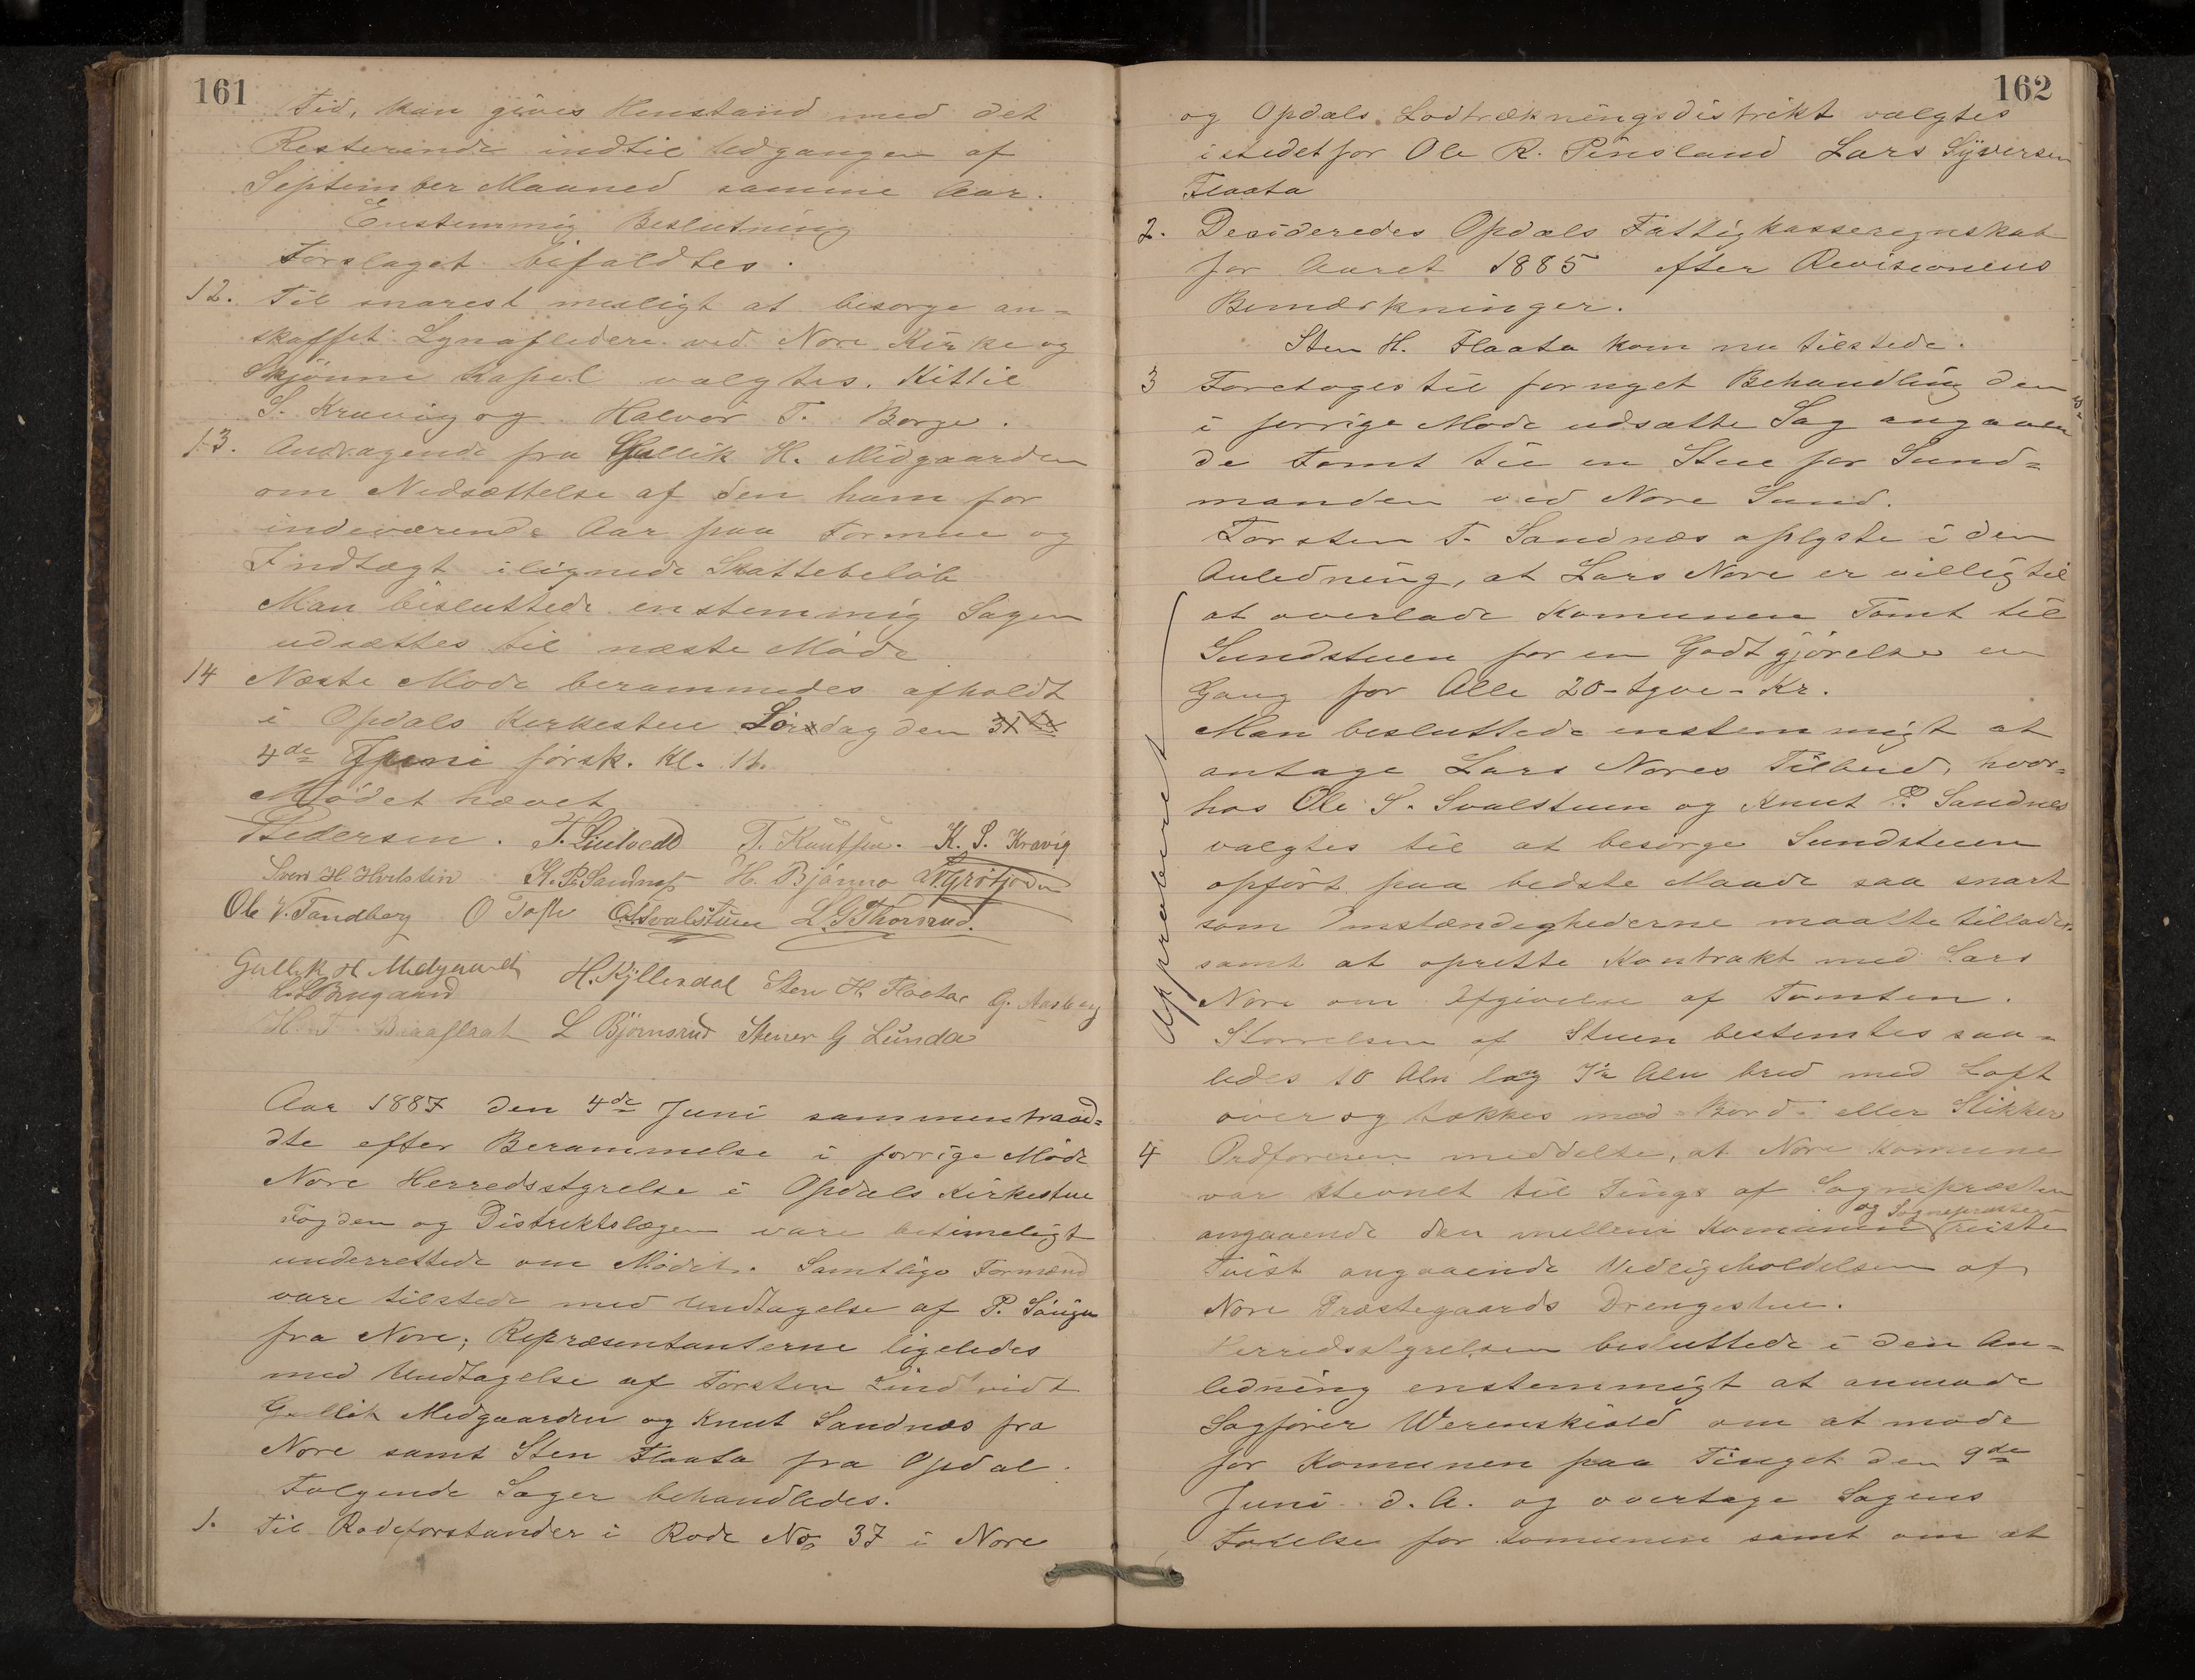 161
Tid, kan gives Henstand med det
Resterende indtil Udgangen af
September Maaned samme Aar.
Enstemmig Beslutning
Forslaget bifaldtes.
12. Til snarest muligt at besorge an=
skaffet Lynafledere ved Nore Kirke og
Skjönne Kapel valgtes. Kittil
S. Kravig og Halvor T. Borge.
13. Andragende fra Gullik H. Midgaarden
om Nedsættelse af den ham for
indeværende Aar paa Formue og
Indtægt ilignede Skattebelöb
Man besluttede enstemmig Sagen
udsættes til næste Möde
14 Næste Möde berammedes afholdt
i Opdals Kirkestue Lördag den 31te
4de Juni förstk. Kl. 11.
Mödet hævet
Pedersen. T. Lindvedt T. Knutsen. K. S. Kravig
Sven H. Hvilstin K. P. Sandnes H. Bjönno
Ole V. Tandberg O Tofte O. S. Svalstuen L. G. Thorsrud.
Gullik H Medgaarden H. Kjllesdal Sten H. Flaata G. Aasberg
H. T. Braaflaat L Björnsrud Stener G Lunda
Aar 1887 den 4de Juni sammentraad=
dte efter Berammelse i forrige Möde
Nore Herredsstyrelse i Opdals Kirkestue
Fogden og Distriktslægen vare betimeligt
underrettede om Mödet. Samtlige Formænd
vare tilstede med Undtagelse af P. Söngen
fra Nore; Repræsentanterne ligeledes
med Undtagelse af Torsten Lindtvidt
Gullik Medgaarden og Knut Sandnæs fra
Nore samt Sten Flaata fra Opdal.
Fölgende Sager behandledes.
1. Til Rodeforstander i Rode No 37 i Nore
162
og Opdals Lodtrækningsdistrikt valgtes
istedetfor Ole R. Pinsland Lars Syversen
Flaata
2. Desideredes Opdals Fattigkasseregnskab
for Aaret 1885 efter Revisionens
Bemærkninger.
Sten H. Flaata kom nu tilstede.
3 Foretoges til fornyet Behandling den
i forrige Möde udsatte Sag angaaen
de Tomt til en Stue for Sund=
manden ved Nore Sund.
Torsten T. Sandnæs oplyste i den
Anledning, at Lars Nore er villig til
at overlade Komunen Tomt til
Sundstuen for en Godtgjörelse en
Gang for Alle 20-tyve-Kr.
Man besluttede enstemmigt at
antage Lars Nores Tilbud, hvor=
hos Ole S. Svalstuen og Knut P. Sandnes
valgtes til at besörge Sundstuen
opfört paa bedste Maade saa snart
som Omstændighederne maatte tillade,
samt at oprette Kontrakt med Lars
Nore om Afgivelse af Tomten.
Störrelsen af Stuen bestemtes saa=
ledes 10 Alen lang 7½ Alen bred med Loft
over og tækkes med Bord- eller Stikker
Approberet
4 Ordföreren meddelte, at Nore Komune
var stevnet til Tings af Sognepræsten
og Sognepræsten
angaaende den mellem Komunen reiste
Tvist angaaende Vedligeholdelsen af
Nore Præstegaards Drengestue.
Herredsstyrelsen besluttede i den An=
ledning enstemmigt at anmode
Sagförer Werenskiold om at möde
for Komunen paa Tinget den 9de
Juni d. A. og overtage Sagens
Förelse for Komunen samt om at